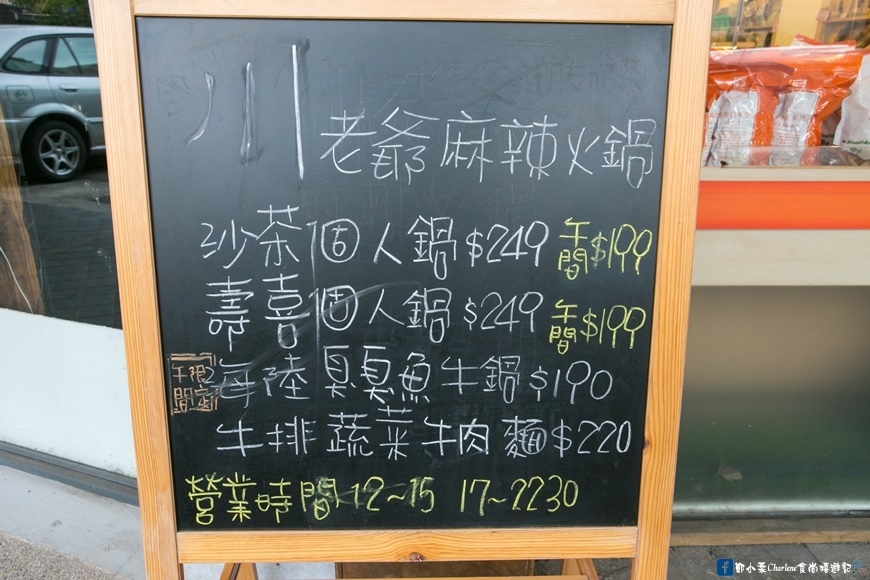 川老爺麻辣火鍋
沙茶個人鍋$249 午間$199
壽喜個人鍋$249 午間$199
午間限定 海陸臭臭魚牛鍋$190
牛排蔬菜牛肉麵$220
營業時間12~15 17~2230
Charlene食尚嘻遊記